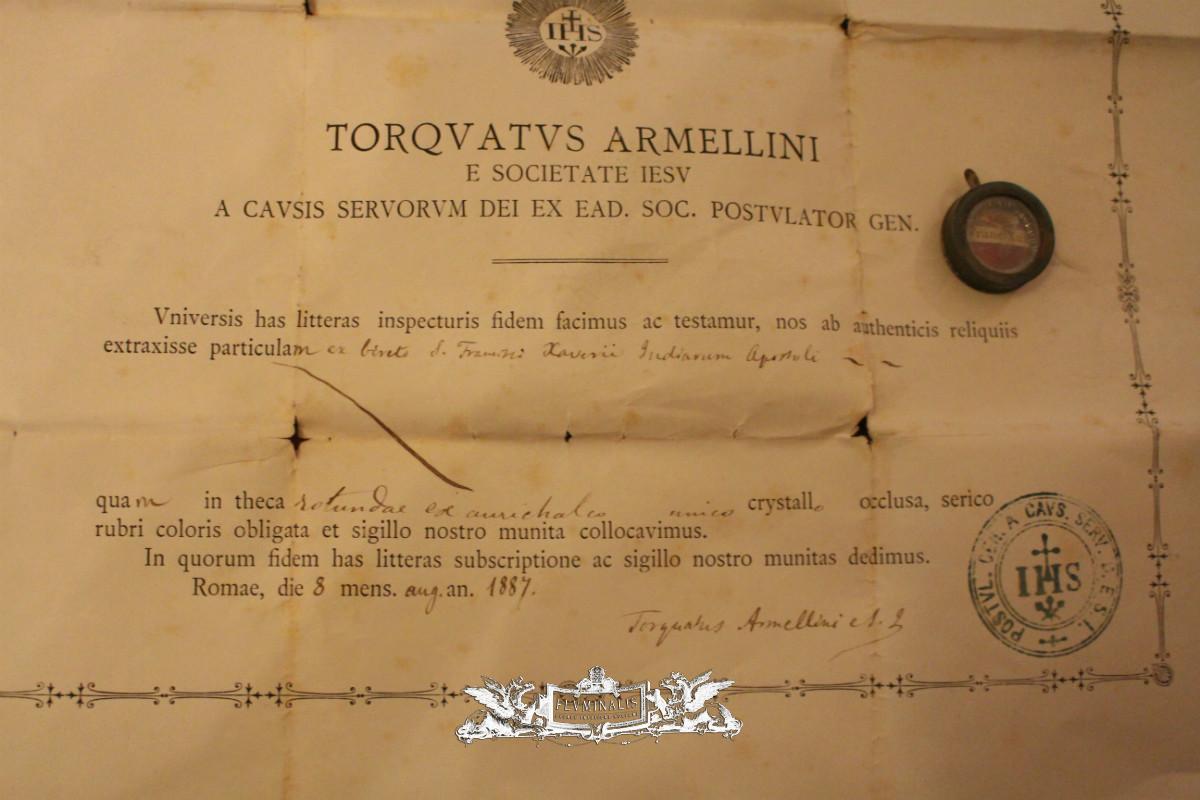 IHS
TORQVATVS ARMELLINI
E SOCIETATE IESV
A CAVSIS SERVORVM DEI EX EAD. SOC. POSTVLATOR GEN.
Vniversis has litteras inspecturis fidem facimus ac testamur, nos ab authenticis reliquiis
extraxisse particulam ex bireto S. Francisci Xaverii Indiarum Apostoli
quam in theca rotundae ex aurichalco unico crystallo occlusa, serico
rubri coloris obligata et sigillo nostro munita collocavimus.
In quorum fidem has litteras subscriptione ac sigillo nostro munitas dedimus.
Romae, die 8 mens. aug. an. 1887.
Torquatus Armellini e S. J.
POSTVL. GEN. A CAVS. SERV. D. E S. I.
IHS
FLVMINALIS